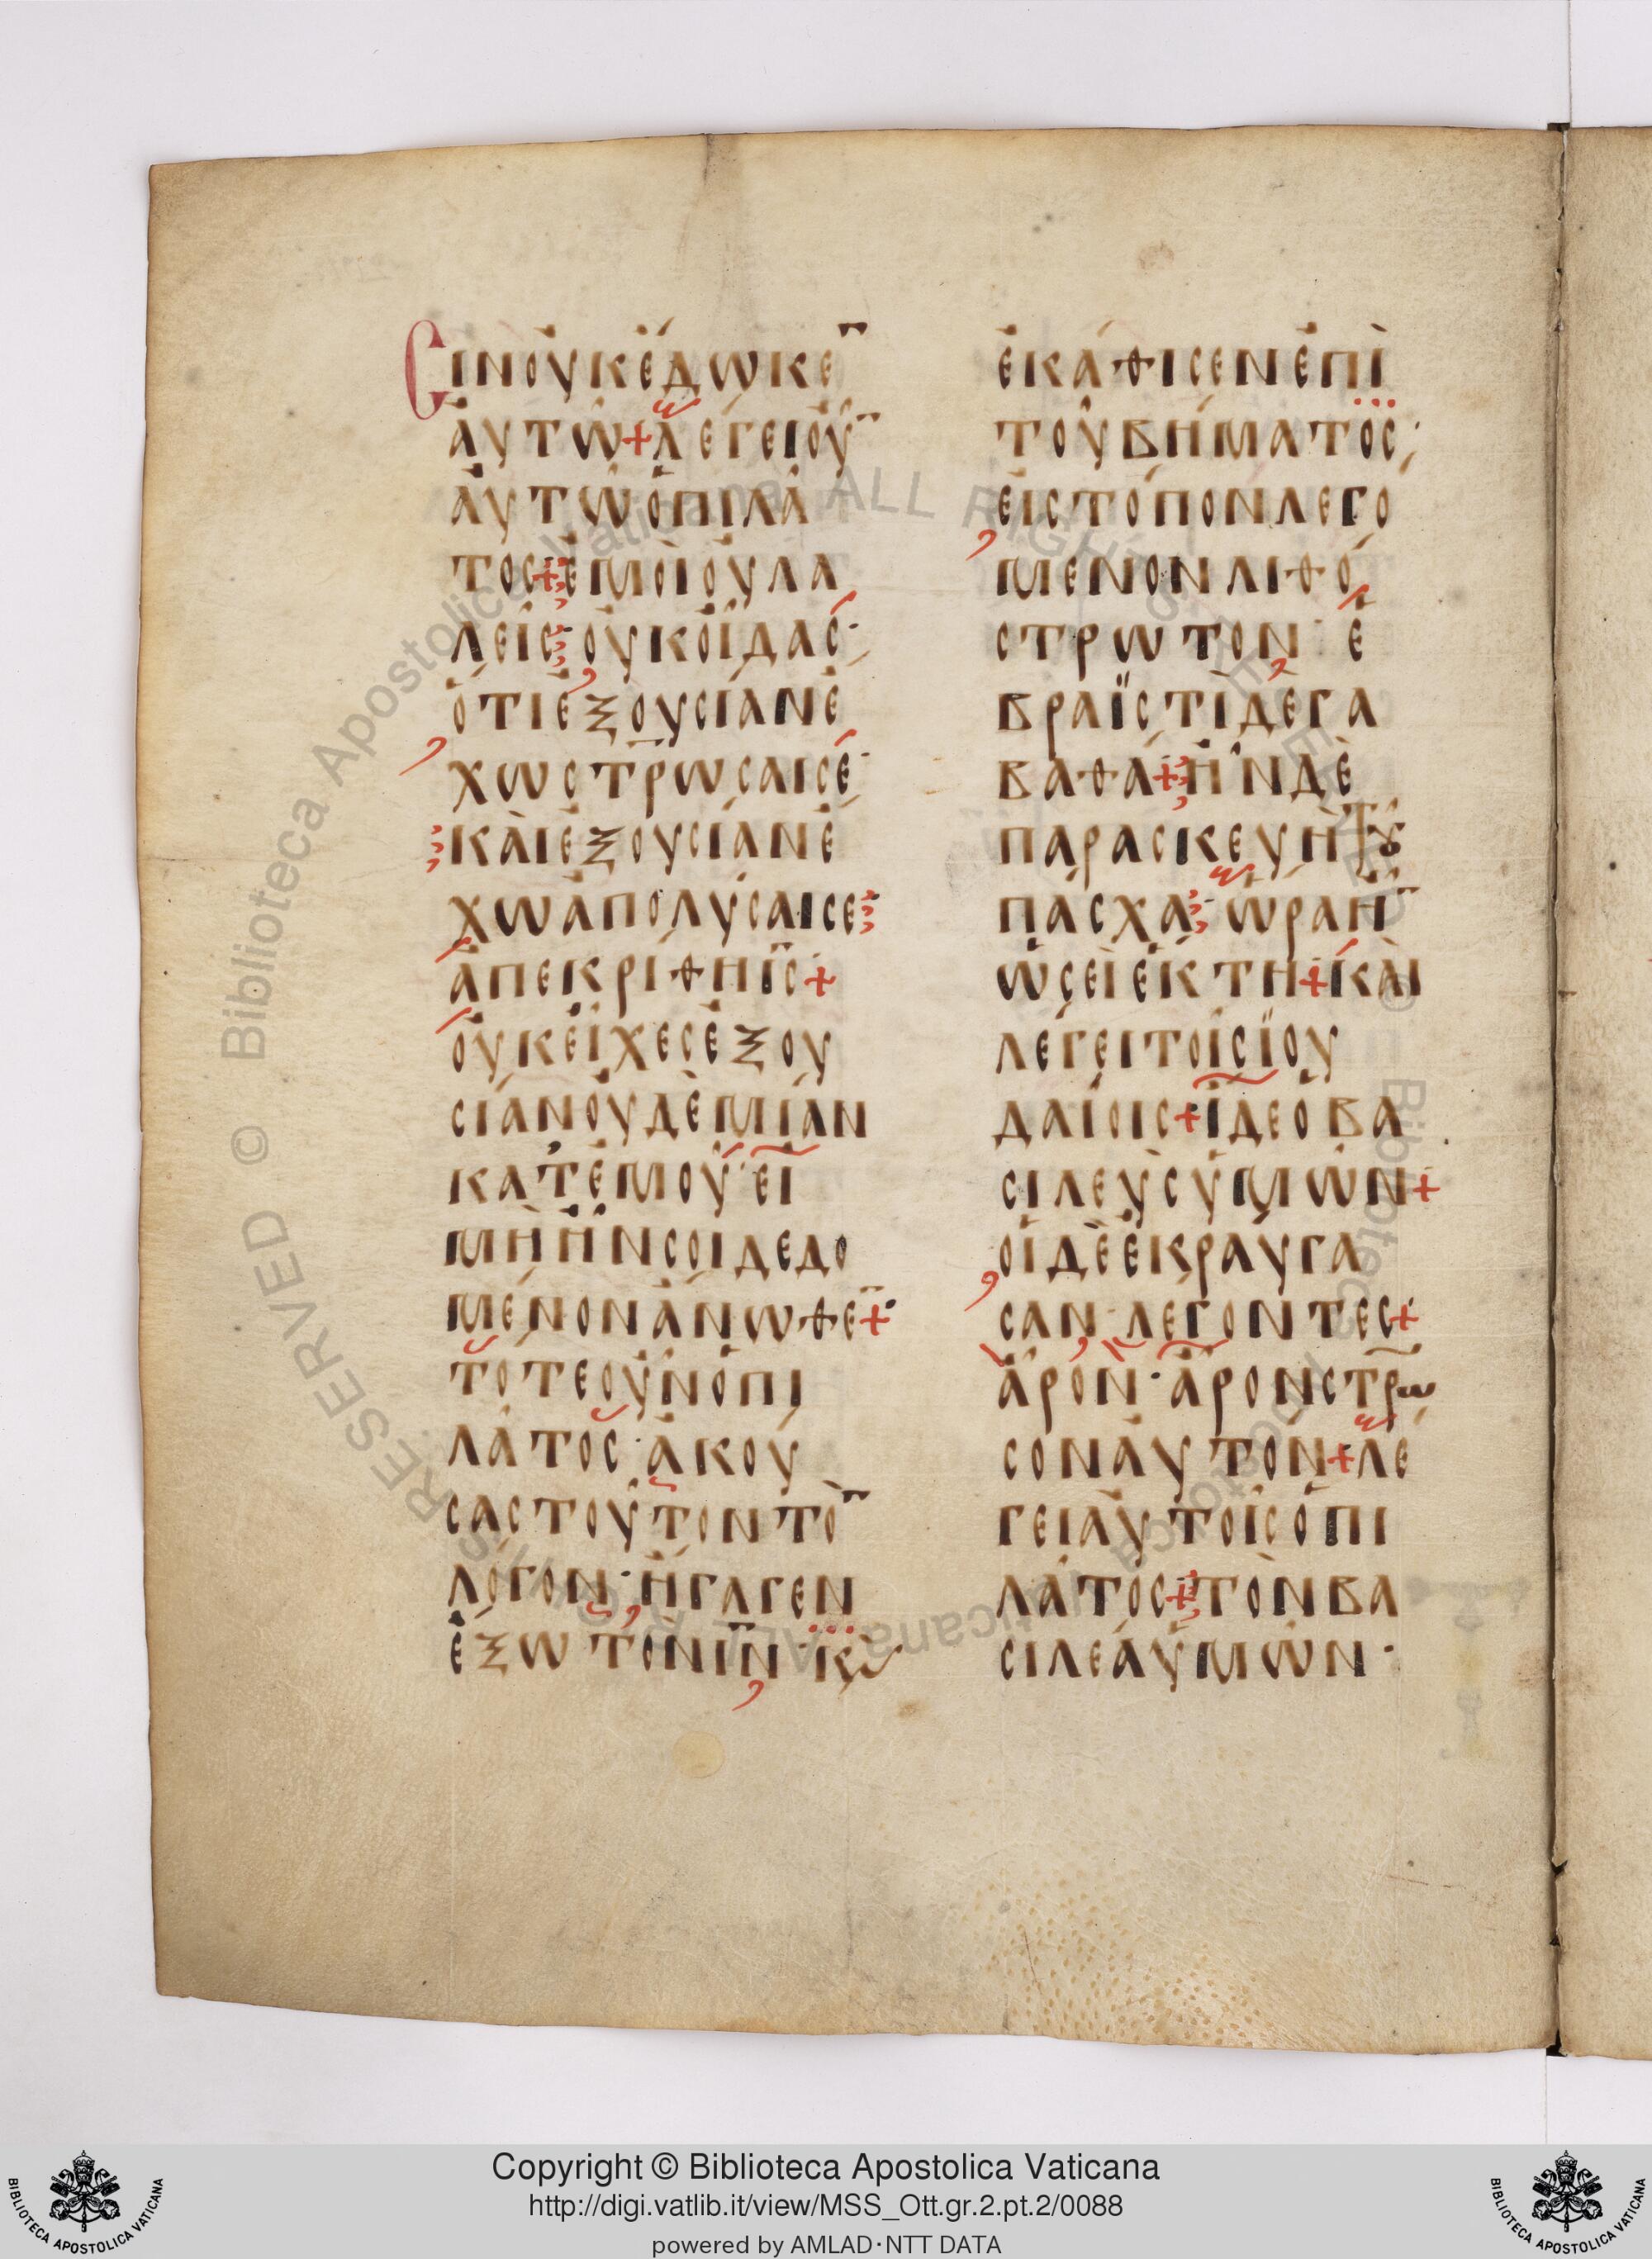 СΙΝΟΥΚΕΔΩΚΕ̅
ΑΥΤΩ+ΛΕΓΕΙΟΥ̅
ΑΥΤΩΟΠΙΛΑ
ΤΟС+ΕΜΟΙΟΥΛΑ
ΛΕΙС·ΟΥΚΟΙΔΑС·
ΟΤΙΕΞΟΥСΙΑΝΕ
ΧΩСΤΡΩСΑΙСΕ·
ΚΑΙΕΞΟΥСΙΑΝΕ
ΧΩΑΠΟΛΥСΑΙСΕ·
ΑΠΕΚΡΙΘΗΙ̅С̅+
ΟΥΚΕΙΧΕСΕΞΟΥ
СΙΑΝΟΥΔΕΜΙΑΝ
ΚΑΤΕΜΟΥ·ΕΙ
ΜΗΗΝСΟΙΔΕΔΟ
ΜΕΝΟΝΑΝΩΘΕ̅+
ΤΟΤΕΟΥΝΟΠΙ
ΛΑΤΟС·ΑΚΟΥ
СΑСΤΟΥΤΟΝΤΟ̅
ΛΟΓΟΝ·ΗΓΑΓΕΝ
ΕΞΩΤΟΝΙ̅Ν̅·Κϗ
ΕΚΑΘΙСΕΝΕΠΙ
ΤΟΥΒΗΜΑΤΟС·
ΕΙСΤΟΠΟΝΛΕΓΟ
ΜΕΝΟΝΛΙΘΟ
СΤΡΩΤΟΝ·Ε
ΒΡΑΪСΤΙΔΕΓΑ
ΒΑΘΑ+ΗΝΔΕ
ΠΑΡΑСΚΕΥΗΤȢ
ΠΑСΧΑ·ΩΡΑΗ̅
ΩСΕΙΕΚΤΗ+ΚΑΙ
ΛΕΓΕΙΤΟΙСΪΟΥ
ΔΑΙΟΙС+ΙΔΕΟΒΑ
СΙΛΕΥСΥΜΩΝ+
ΟΙΔΕΕΚΡΑΥΓΑ
СΑΝ·ΛΕΓΟΝΤΕС+
ΑΡΟΝ·ΑΡΟΝСΤΡΩ
СΟΝΑΥΤΟΝ+ΛΕ
ΓΕΙΑΥΤΟΙСΟΠΙ
ΛΑΤΟС+ΤΟΝΒΑ
СΙΛΕΑΥΜΩΝ·
Copyright © Biblioteca Apostolica Vaticana
http://digi.vatlib.it/view/MSS_Ott.gr.2.pt.2/0088
powered by AMLAD·NTT DATA
BIBLIOTECA APOSTOLICA VATICANA
BIBLIOTECA APOSTOLICA VATICANA